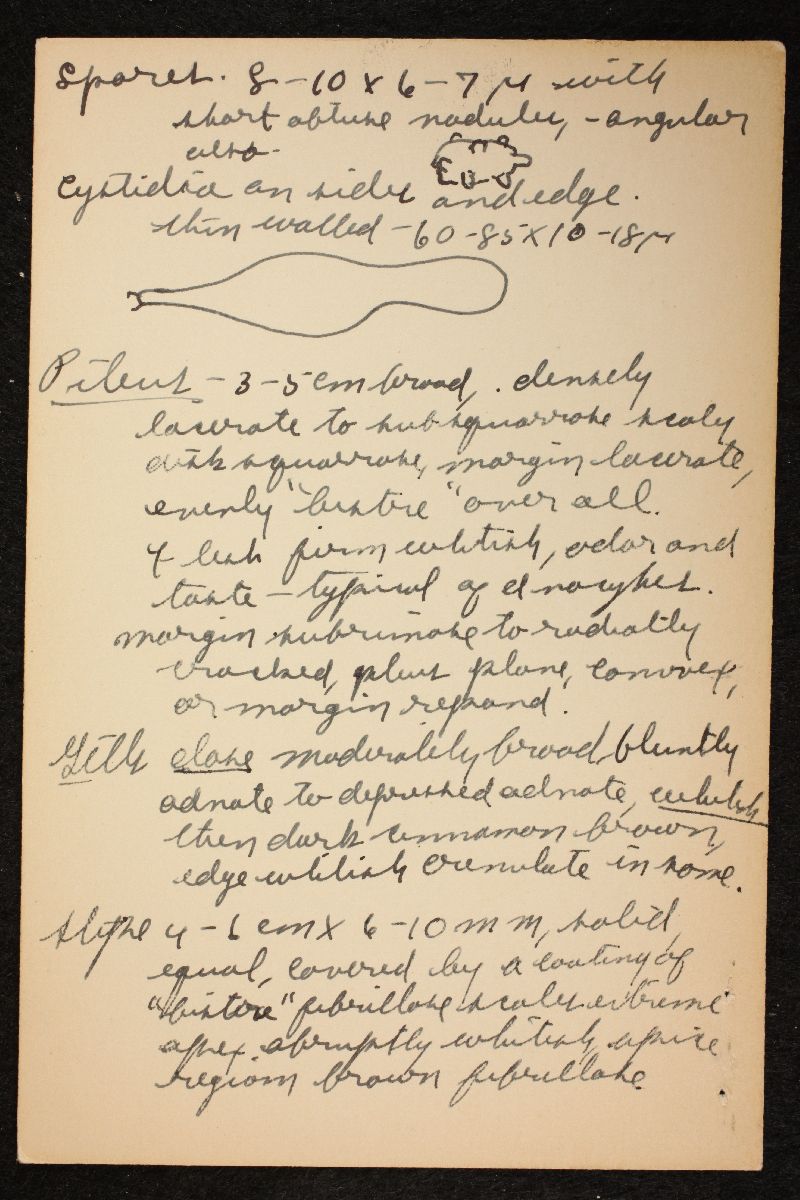 Spores. 8-10 x 6-7 µ with
short obtuse nodules, - angular
also -
Cystidia on sides and edge.
thin walled - 60-85 x 10-18 µ
Pileus - 3-5 cm broad, . densely
lacerate to subsquarrose scaly
disk squarrose, margin lacerate,
evenly "bistre" over all.
flesh firm whitish, odor and
taste - typical of Inocybes.
margin subrimose to radially
cracked, pileus plane, convex,
or margin repand.
Gills close moderately broad, bluntly
adnate to depressed adnate, whitish
then dark cinnamon brown,
edge whitish crenulate in some.
stipe 4-6 cm x 6-10 mm, solid,
equal, covered by a coating of
"bistre" fibrillose scales extreme
apex abruptly whitish,
region brown fibrillose